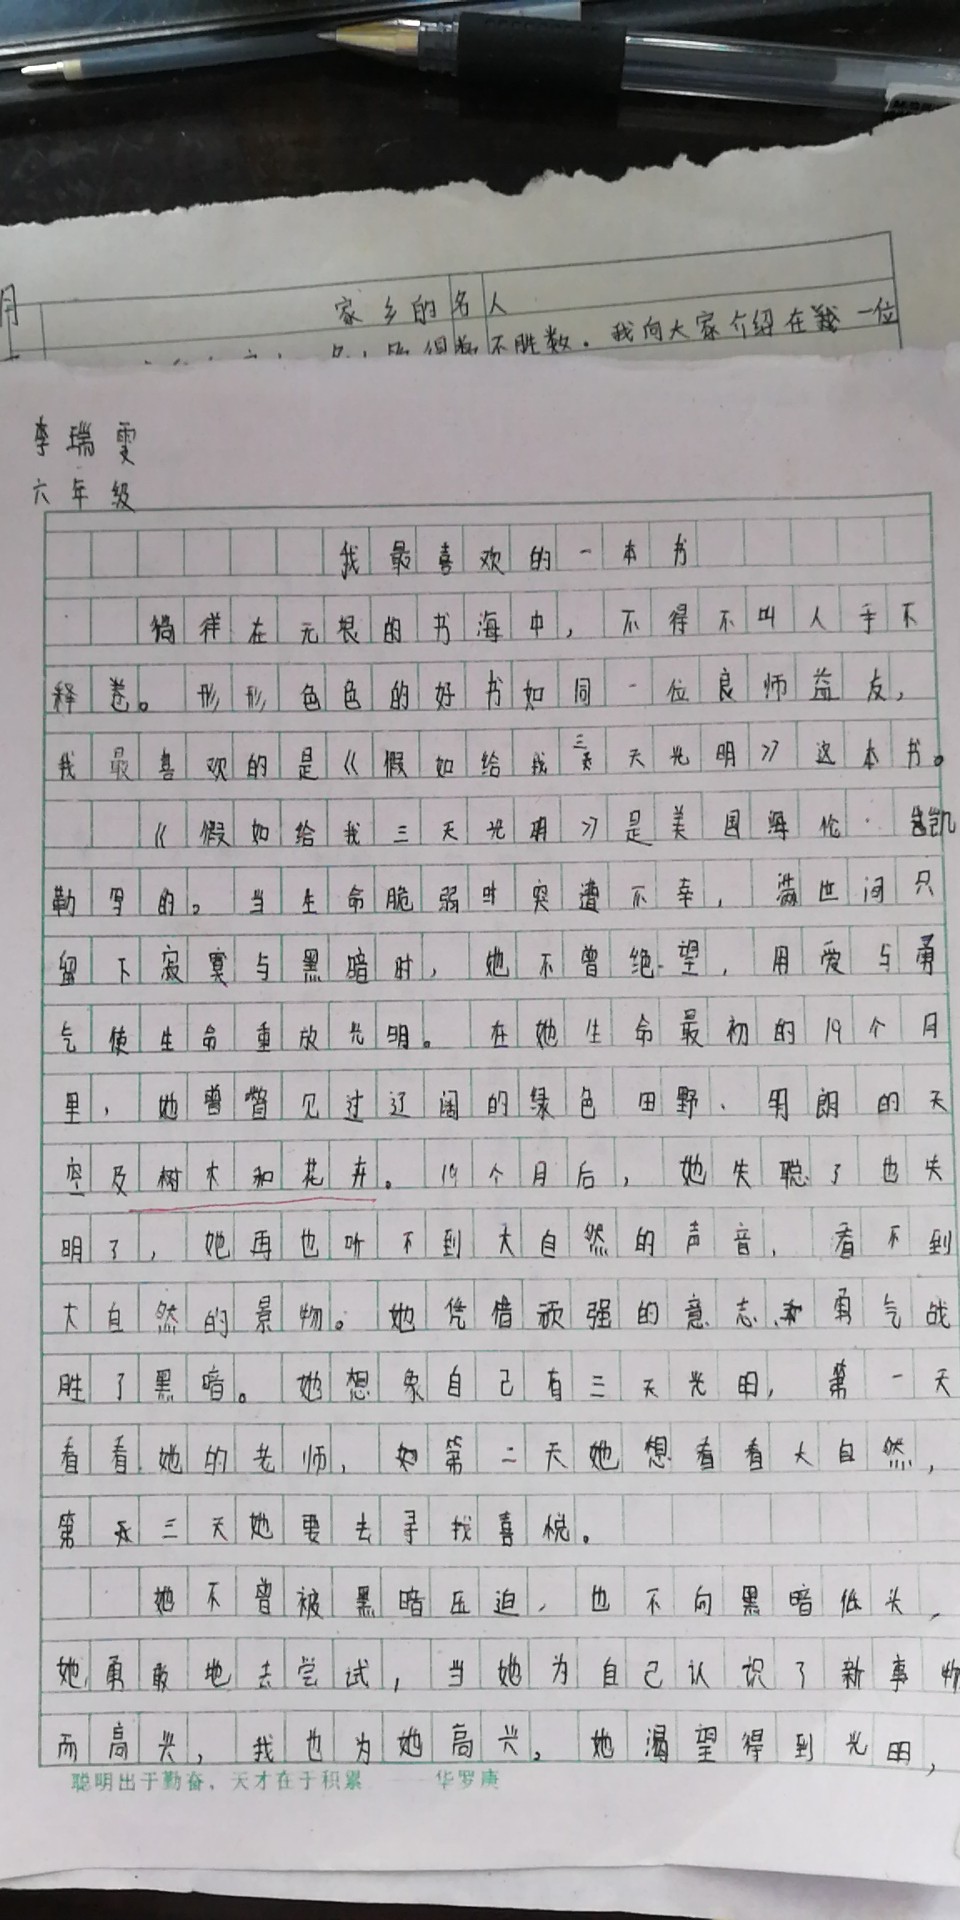 月
家乡的名人
不胜数。我向大家介绍在我一位
李瑞雯
六年级
我最喜欢的一本书
徜徉在无垠的书海中，不得不叫人手不
释卷。形形色色的好书如同一位良师益友，
我最喜欢的是《假如给我三天光明》这本书。
《假如给我三天光明》是美国海伦·凯
勒写的。当生命脆弱时突遭不幸，满世间只
留下寂寞与黑暗时，她不曾绝望，用爱与勇
气使生命重放光明。在她生命最初的19个月
里，她曾瞥见过辽阔的绿色田野、明朗的天
空及树木和花卉。19个月后，她失聪了也失
明了，她再也听不到大自然的声音，看不到
大自然的景物。她凭借顽强的意志和勇气战
胜了黑暗。她想象自己有三天光明，第一天
看看她的老师，第二天她想看看大自然，
第三天她要去寻找喜悦。
她不曾被黑暗压迫，也不向黑暗低头，
她勇敢地去尝试，当她为自己认识了新事物
而高兴，我也为她高兴。她渴望得到光明，
聪明出于勤奋，天才在于积累 ——华罗庚